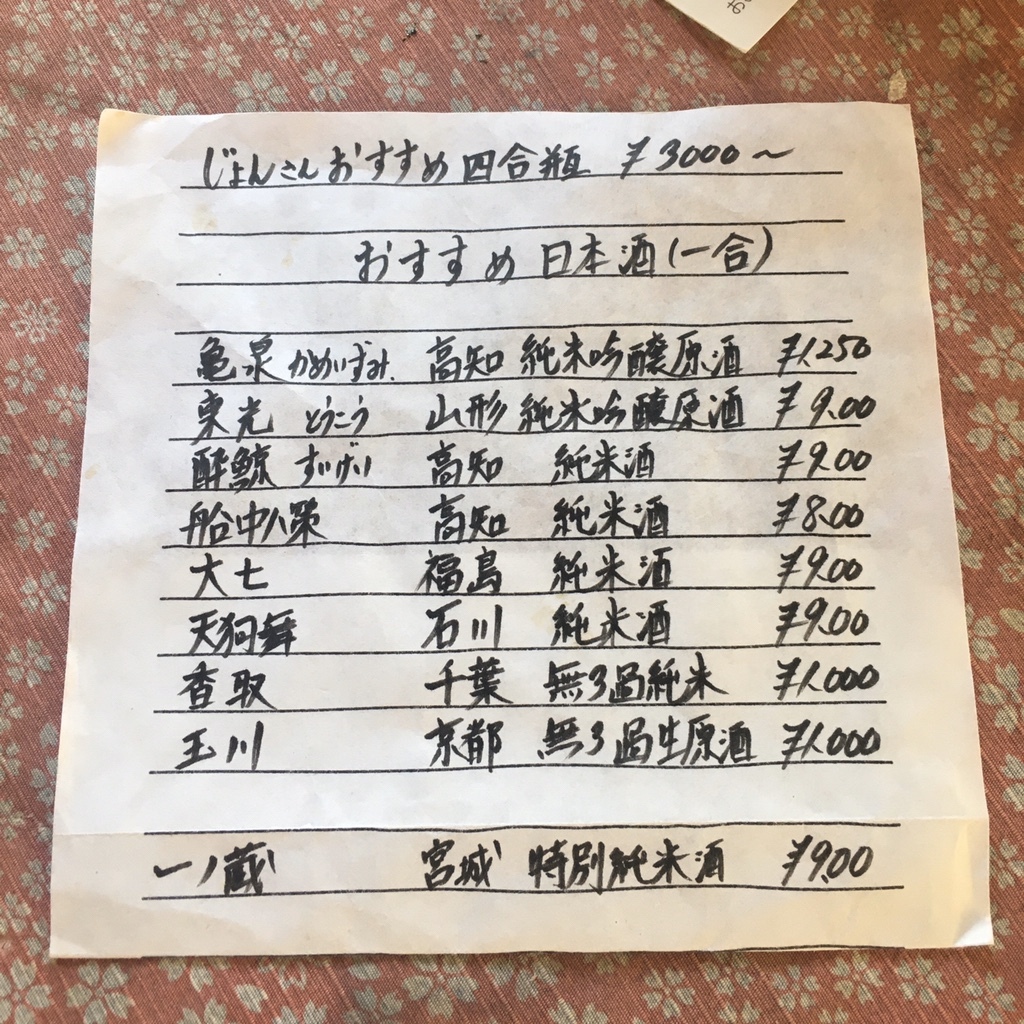 じょんさんおすすめ 四合瓶 ¥3000〜
おすすめ 日本酒(一合)
亀泉 かめいずみ. 高知 純米吟醸原酒 ¥1.250
東光 とうこう 山形 純米吟醸原酒 ¥9.00
酔鯨 すいげい 高知 純米酒 ¥9.00
船中八策 高知 純米酒 ¥8.00
大七 福島 純米酒 ¥9.00
天狗舞 石川 純米酒 ¥9.00
香取 千葉 無ろ過純米 ¥1.000
玉川 京都 無ろ過生原酒 ¥1.000
一ノ蔵 宮城 特別純米酒 ¥9.00